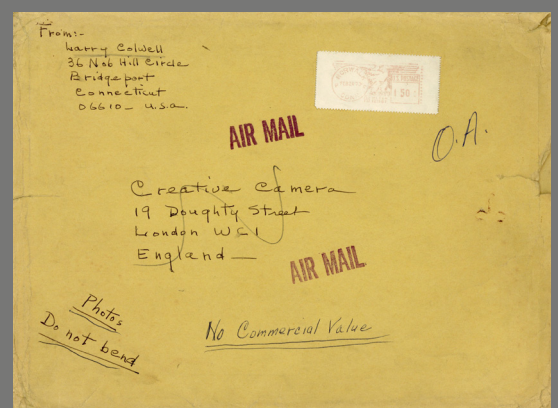 From:-
Larry Colwell
36 Nob Hill Circle
Bridgeport
Connecticut
06610 - U.S.A.
AIR MAIL
O.A.
Creative Camera
19 Doughty Street
London WC1
England
AIR MAIL
Photos
Do not bend
No Commercial Value